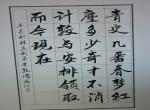 青史几番春梦红
尘多少奇才不消
计较与安排领取
而今现在